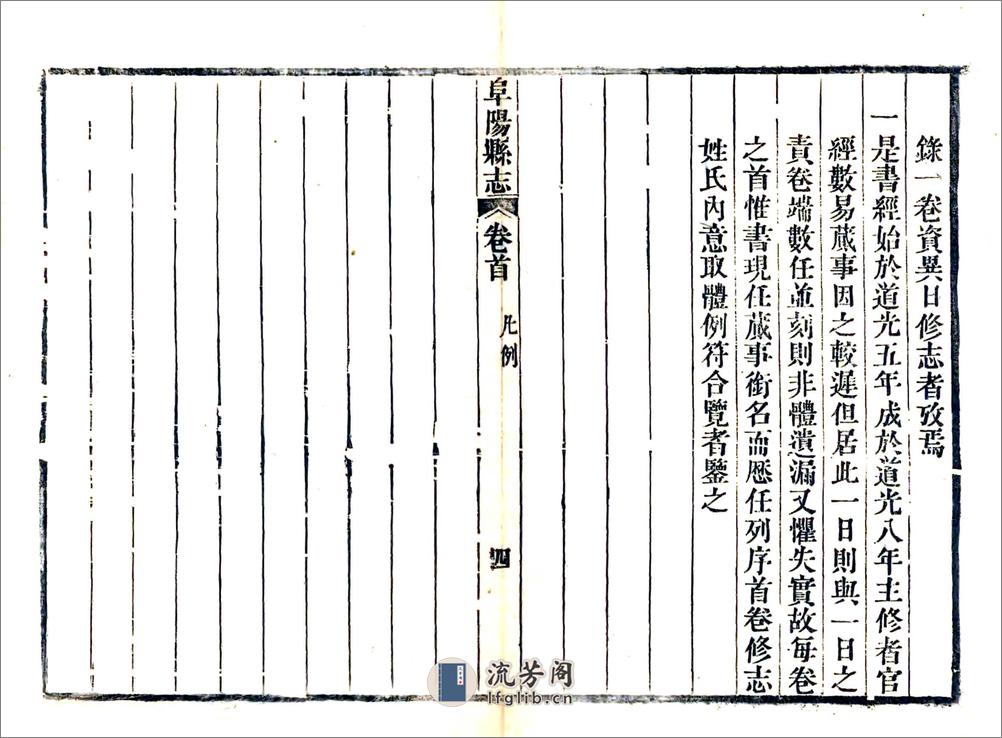 錄一卷資異日修志者攷焉
一是書經始於道光五年成於道光八年主修者官
經數易蕆事因之較遲但居此一日則與一日之
責卷端數任並刻則非體遺漏又懼失實故每卷
之首惟書現任蕆事銜名而歷任列序首卷修志
姓氏內意取體例符合覽者鑒之
阜陽縣志
卷首
凡例
四
流芳阁
lfglib.cn